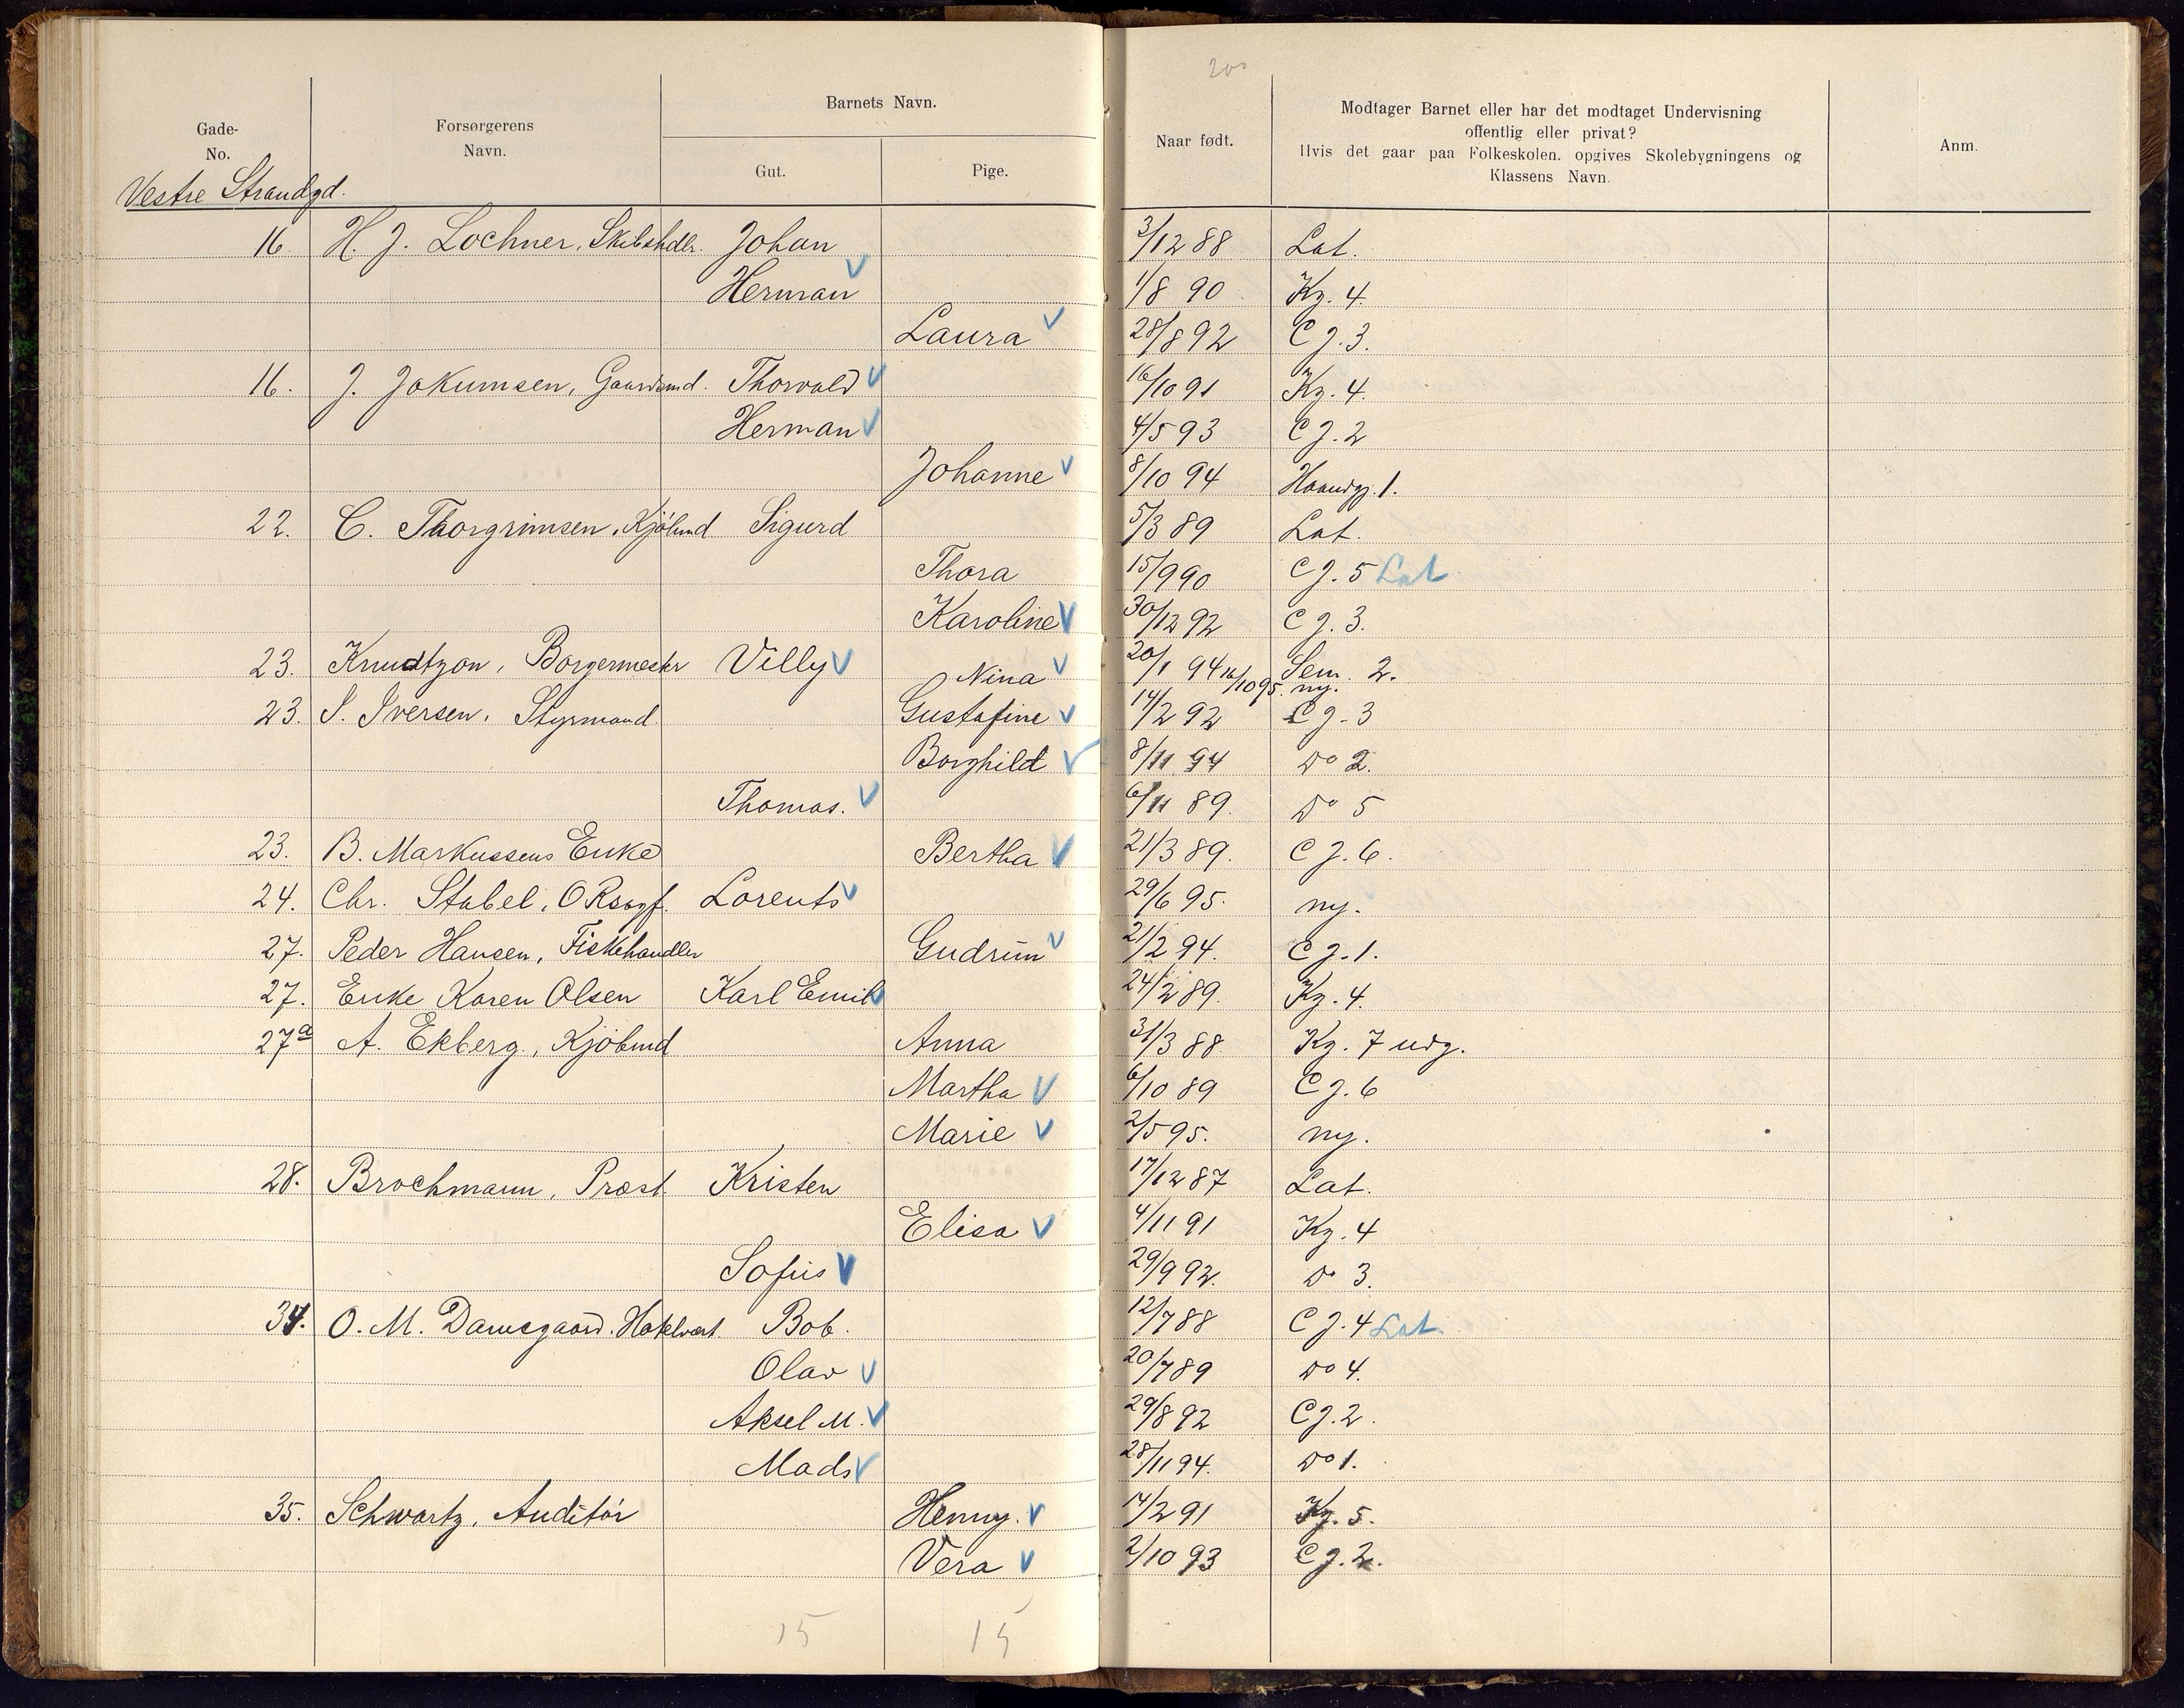 200
Gade-
No.
Forsørgerens
Navn.
Barnets Navn.
Gut.
Pige.
Naar født.
Modtager Barnet eller har det modtaget Undervisning
offentlig eller privat?
Hvis det gaar paa Folkeskolen. opgives Skolebygningens og
Klassens Navn.
Anm.
Vestre Strandgd.
16. H. J. Lochner, Skibshdlr. Johan 3/12 88 Lat.
Herman V 1/8 90 Kg. 4.
Laura V 28/8 92 C J. 3.
16. J. Jokumsen, Gaardmd. Thorvald V 16/10 91 Kg. 4.
Herman V 4/5 93 C J. 2
Johanne V 8/10 94 Haandgj. 1.
22. C. Thorgrimsen, Kjøbmd Sigurd 5/3 89 Lat.
Thora 15/9 90 C J. 5 Lat
Karoline V 30/12 92 C J. 3.
23. Knudtzon, Borgermester Villy V Nina V 20/1 94 16/10 95. Sem. 2. ny.
23. S. Iversen, Styrmand. Gustafine V 14/2 92 C J. 3
Borghild V 8/11 94 Do 2.
Thomas. V 6/11 89. Do 5
23. B. Markussens Enke Bertha V 21/3 89. C J. 6.
24. Chr. Stabel, ORsagf. Lorents V 29/6 95. ny.
27. Peder Hansen, Fiskehandler Gudrun V 21/2 94. C J. 1.
27. Enke Karen Olsen Karl Emil V 24/2 89. Kg. 4.
27a A. Ekberg, Kjøbmd Anna 31/3 88. Kg. 7 udg.
Martha V 6/10 89 C J. 6
Marie V 2/5 95. ny.
28. Brochmann, Prost Kristen 17/12 87 Lat.
Elisa V 4/11 91 Kg. 4
Sofus V 29/9 92. Do 3.
34. O. M. Damsgaard. Hotelvært Bob. 12/7 88 C J. 4 Lat.
Olav V 20/7 89 Do 4.
Aksel M. V 29/8 92 C J. 2.
Mads V 28/11 94. Do 1.
35. Schwartz, Auditør Henny. V 14/2 91 Kg. 5.
Vera V 2/10 93 C J. 2.
15 15